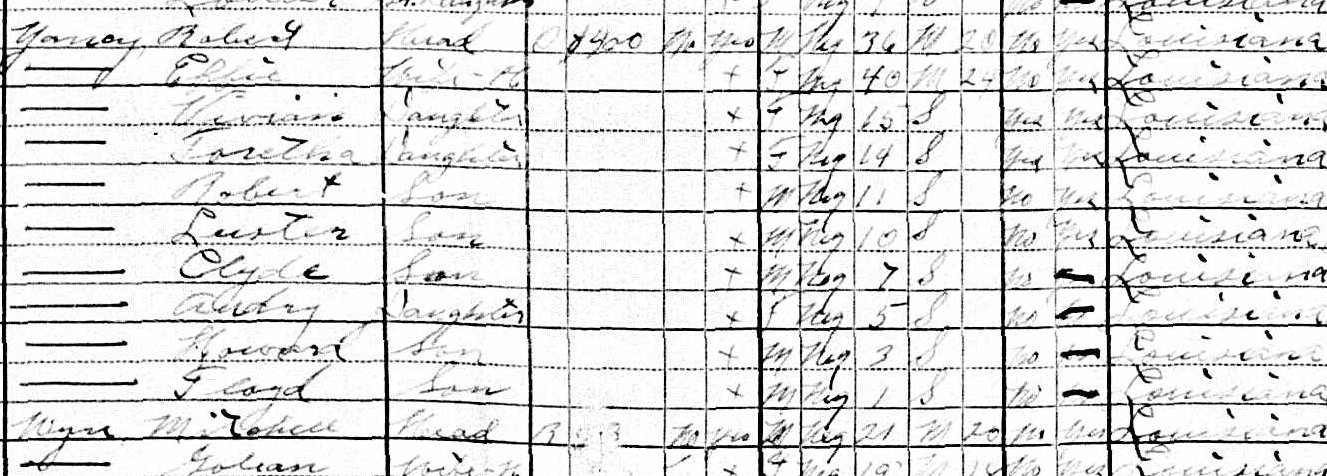 Louisiana
Yancy Robert Head O 400 No Yes M Neg 36 M 20 No Yes Louisiana
— Effie Wife-H + F Neg 40 M 24 No Yes Louisiana
— Vivian Daughter + F Neg 15 S Yes Yes Louisiana
— Foretha Daughter + F Neg 14 S Yes Yes Louisiana
— Robert Son + M Neg 11 S No Yes Louisiana
— Luster Son + M Neg 10 S No Yes Louisiana
— Clyde Son + M Neg 7 S No — Louisiana
— Audry Daughter + F Neg 5 S No — Louisiana
— Howard Son + M Neg 3 S No — Louisiana
— Floyd Son + M Neg 1 S No — Louisiana
Wyn Mitchell Head R No Yes M Neg 21 M 20 No Yes Louisiana